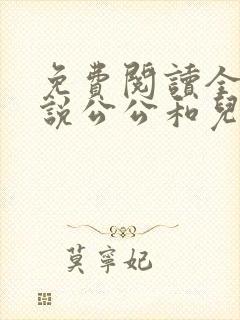 免費閱讀全
說公公和兒
莫寧妃